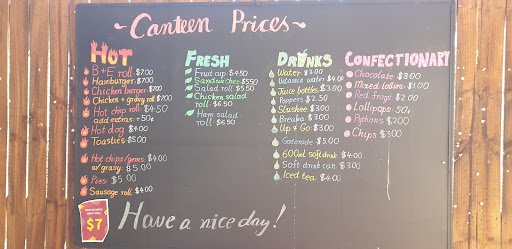 ~Canteen Prices~
HOT
B+E roll $7.00
Hamburger $7.00
Chicken burger $7.00
Chicken + gravy roll $7.00
Hot chip roll $4.50
add extras +50¢
Hot dog $4.00
Toasties $5.00
Hot chips/gems $4.00
w/ gravy $5.00
Pies $5.00
Sausage roll $4.00
$7
FRESH
Fruit cup $4.50
Sandwiches $5.50
Salad roll $5.50
Chicken salad
roll - $6.50
Ham salad
roll $6.50
DRINKS
Water $3.00
Vitamin water $4.00
Juice bottles $3.00
Poppers $2.50
Slushee $3.00
Breaka $3.00
Up & Go $3.00
Gatorade $5.00
600ml soft drink $4.00
Soft drink can $3.00
Iced tea $4.00
CONFECTIONARY
Chocolate $3.00
Mixed lollies $1.00
Red frogs $2.00
Lollipops 50¢
Pythons $2.00
Chips $3.00
Have a nice day!